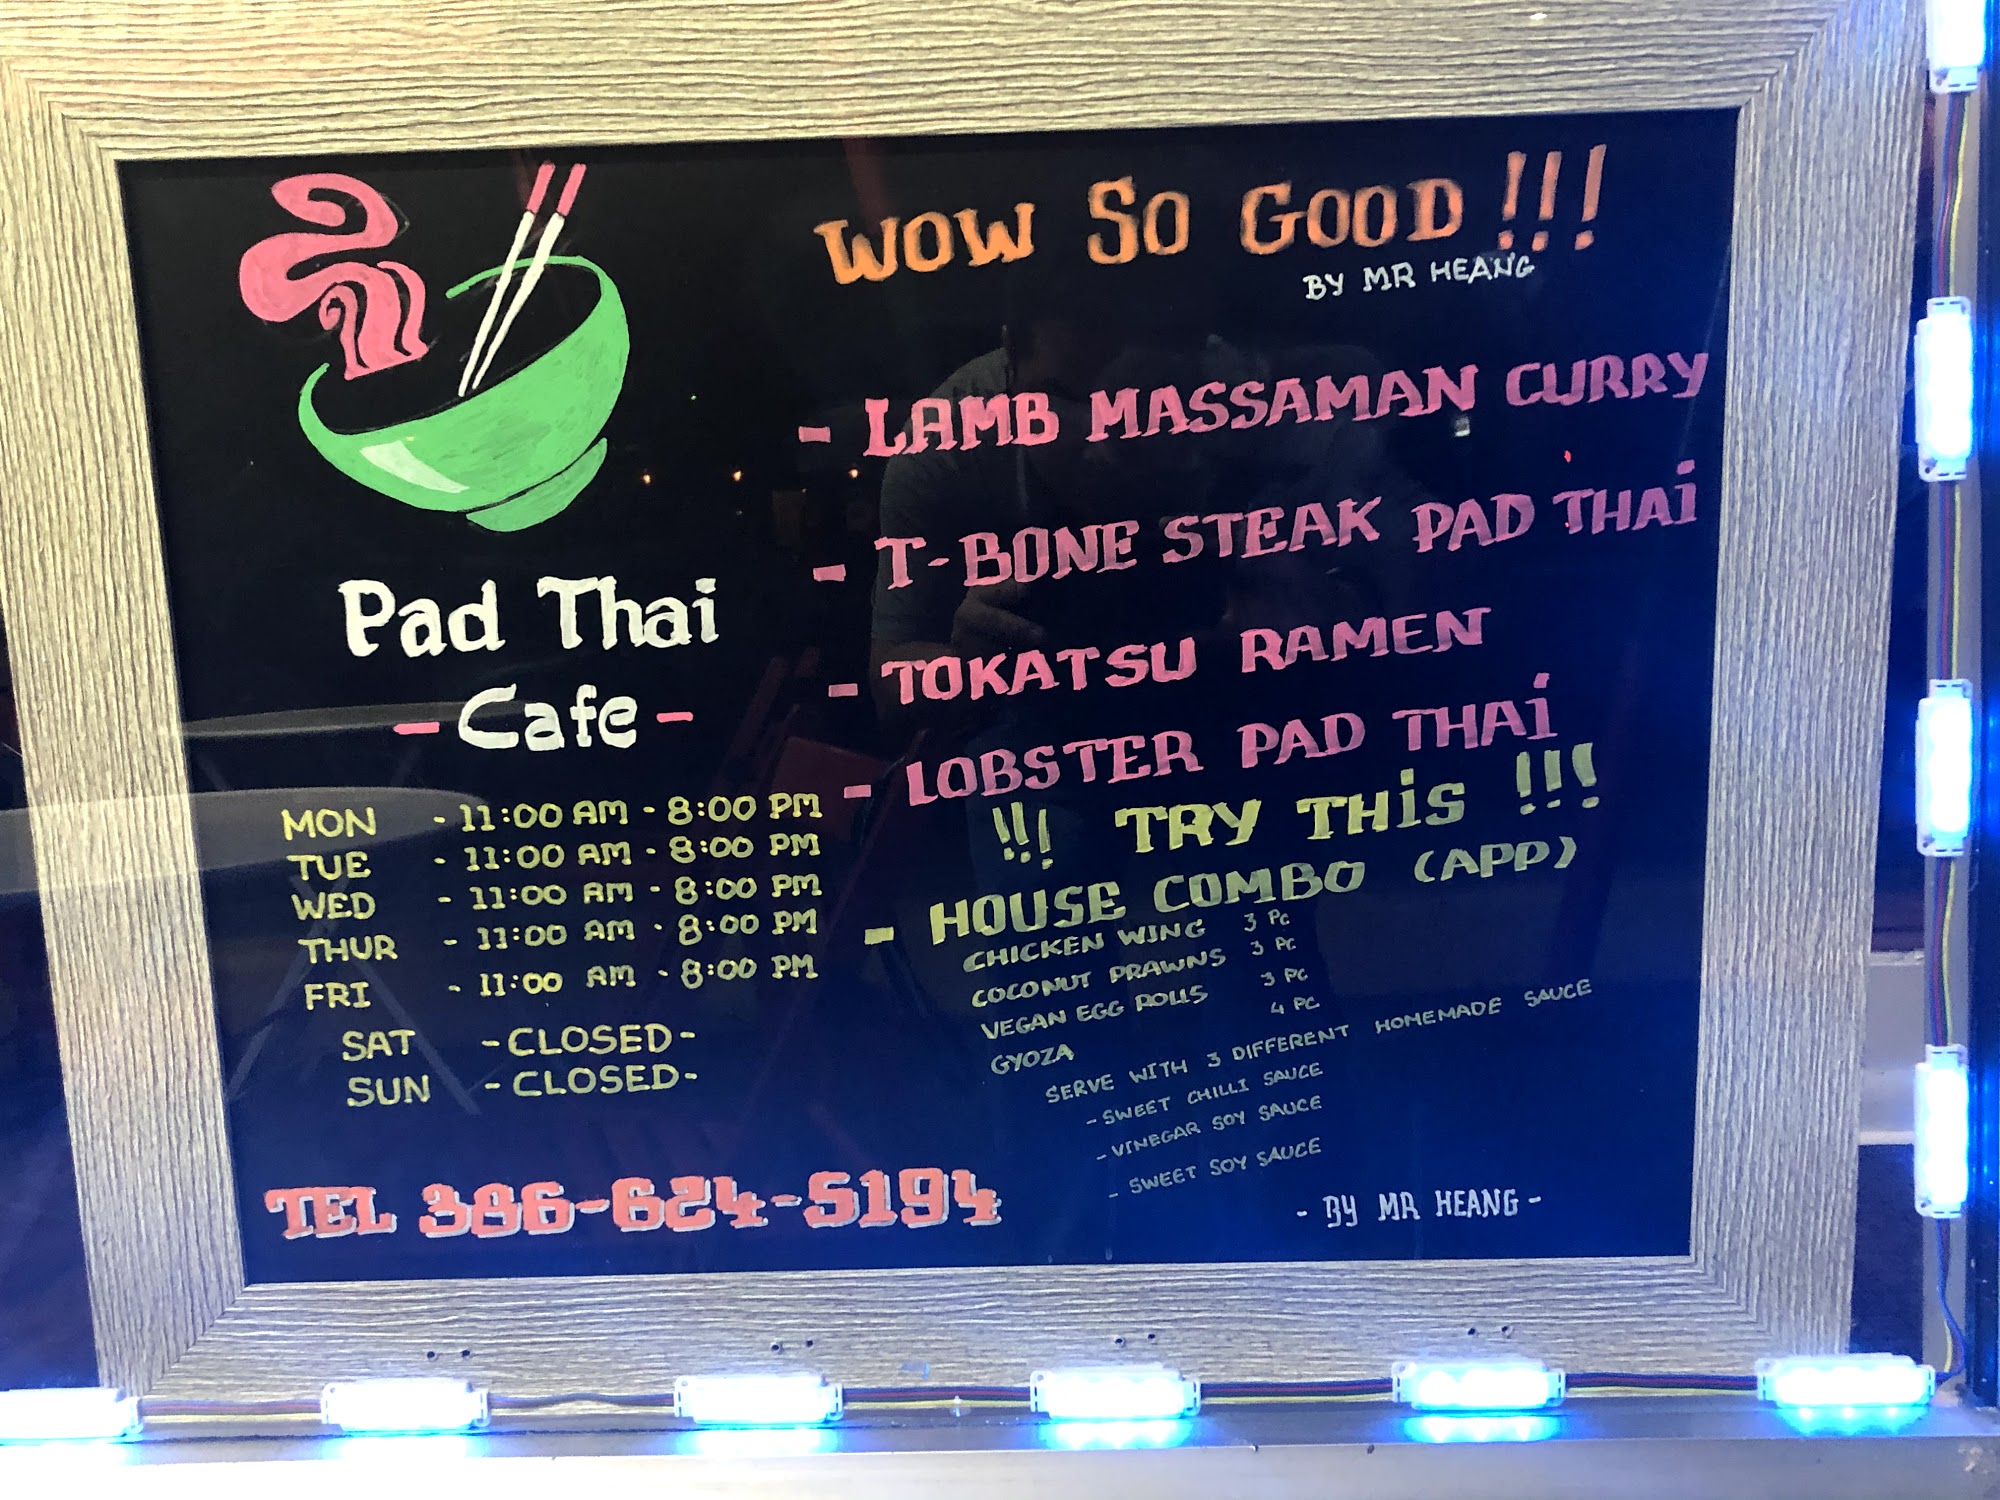 Pad Thai
- Cafe -
MON - 11:00 AM - 8:00 PM
TUE - 11:00 AM - 8:00 PM
WED - 11:00 AM - 8:00 PM
THUR - 11:00 AM - 8:00 PM
FRI - 11:00 AM - 8:00 PM
SAT - CLOSED -
SUN - CLOSED -
TEL 386-624-5194
WOW SO GOOD !!!
BY MR HEANG
- LAMB MASSAMAN CURRY
- T-BONE STEAK PAD THAi
- TOKATSU RAMEN
- LOBSTER PAD THAi
!!! TRY THiS !!!
- HOUSE COMBO (APP)
CHICKEN WING 3 PC
COCONUT PRAWNS 3 PC
VEGAN EGG ROLLS 3 PC
GYOZA 4 PC
SERVE WITH 3 DIFFERENT HOMEMADE SAUCE
- SWEET CHILLI SAUCE
- VINEGAR SOY SAUCE
- SWEET SOY SAUCE
- BY MR HEANG -